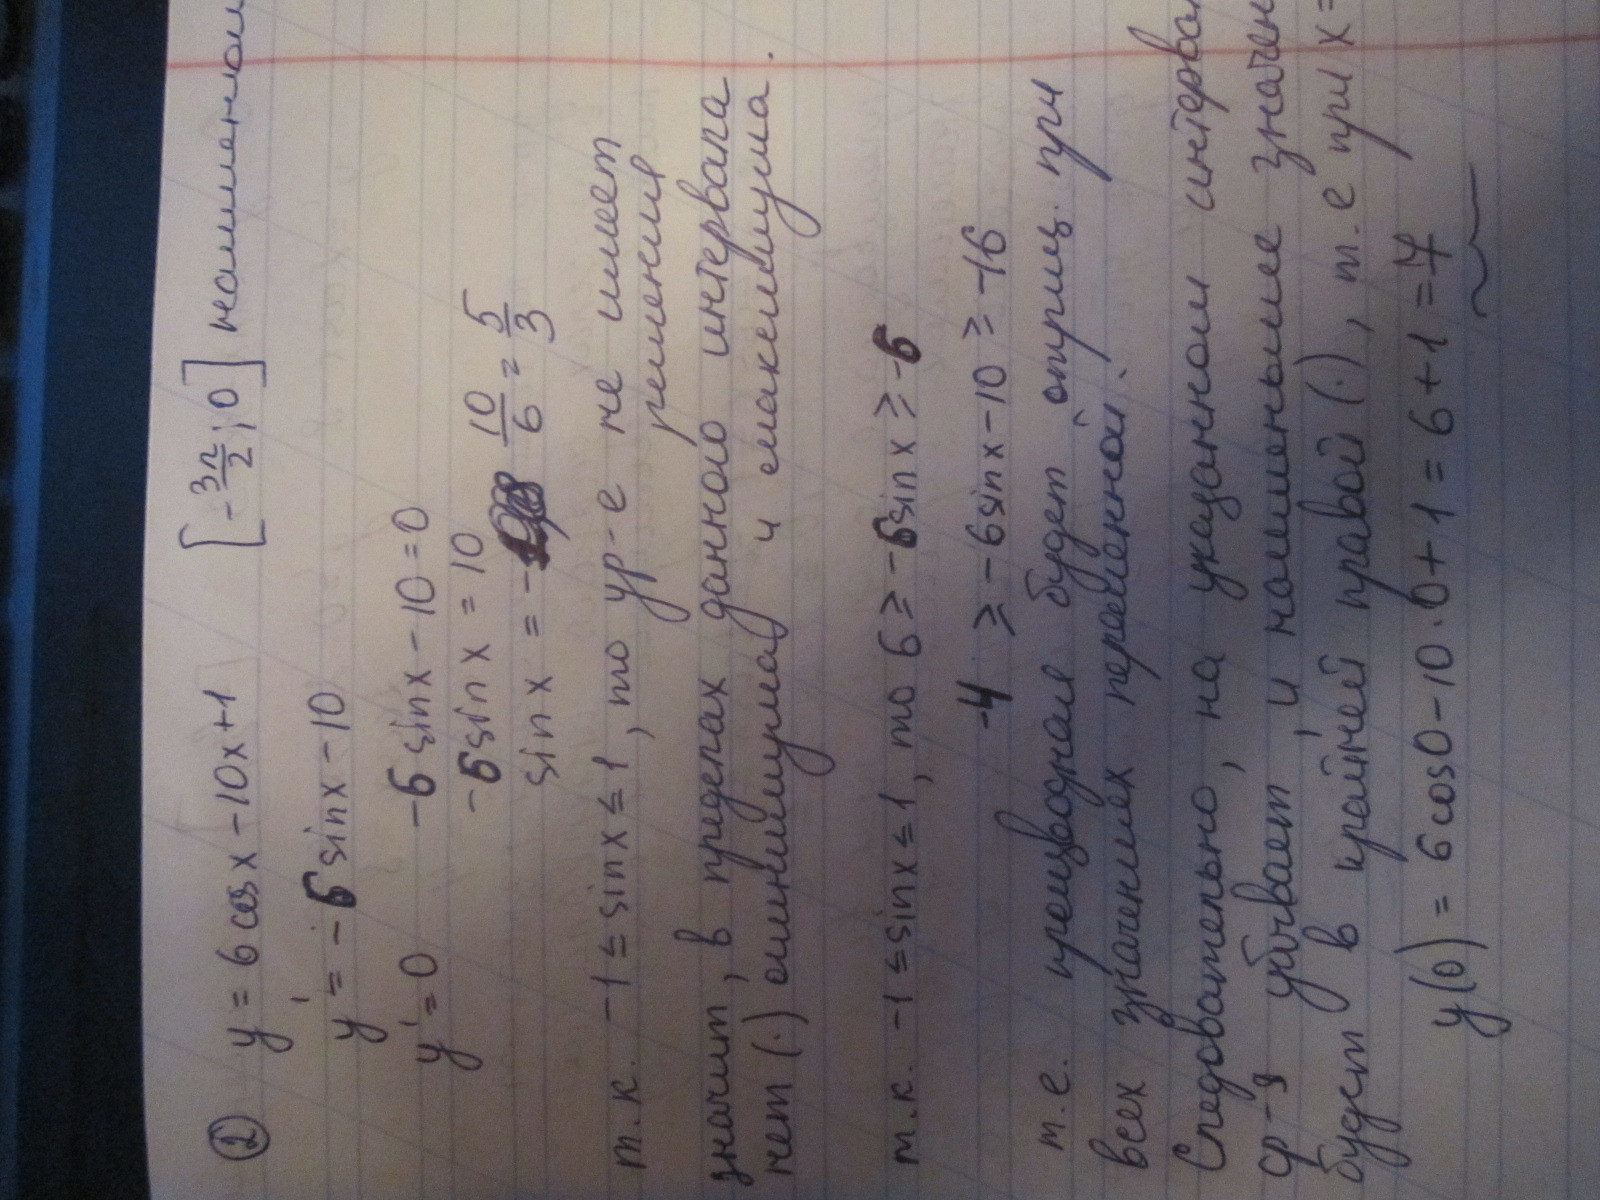 ② y = 6 cos x - 10x + 1 [-3π/2; 0] наименьшее
y' = -6 sin x - 10
y' = 0 -6 sin x - 10 = 0
-6 sin x = 10
sin x = - 10/6 = 5/3
т.к. -1 ≤ sin x ≤ 1, то ур-е не имеет
решения
значит, в пределах данного интервала
нет (·) минимума и максимума.
т.к. -1 ≤ sin x ≤ 1, то 6 ≥ -6 sin x ≥ -6
-4 ≥ -6 sin x - 10 ≥ -16
т.е. производная будет отриц. при
всех значениях переменной.
Следовательно, на указанном интервал
ф-я убывает, и наименьшее значен
будет в крайней правой (·), т.е при x =
y(0) = 6 cos 0 - 10·0 + 1 = 6 + 1 = 7